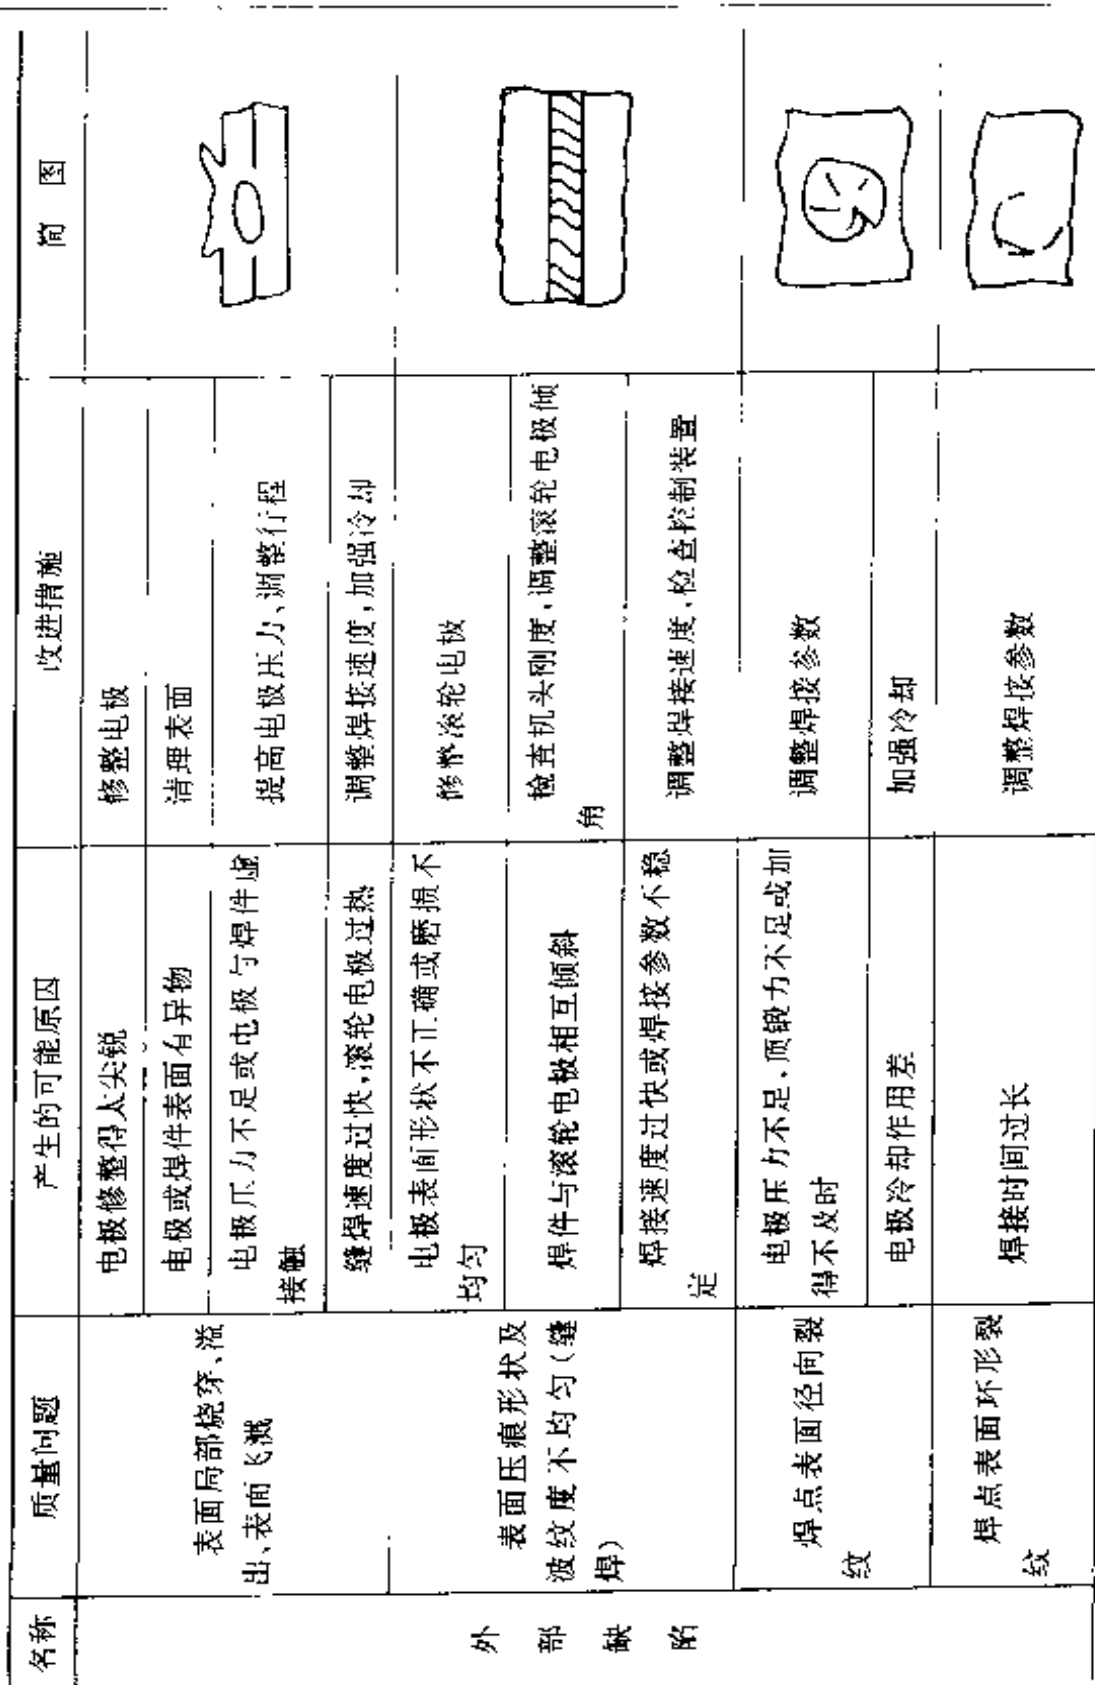 名称
质量问题
产生的可能原因
改进措施
简图
外部缺陷
表面局部烧穿、溢
出、表面飞溅
电极修整得太尖锐
修整电极
电极或焊件表面有异物
清理表面
电极压力不足或电极与焊件虚
接触
提高电极压力、调整行程
缝焊速度过快,滚轮电极过热
调整焊接速度,加强冷却
表面压痕形状及
波纹度不均匀(缝
焊)
电极表面形状不正确或磨损不
均匀
修整滚轮电极
焊件与滚轮电极相互倾斜
检查机头刚度,调整滚轮电极倾
角
焊接速度过快或焊接参数不稳
定
调整焊接速度,检查控制装置
焊点表面径向裂
纹
电极压力不足,顶锻力不足或加
得不及时
调整焊接参数
电极冷却作用差
加强冷却
焊点表面环形裂
纹
焊接时间过长
调整焊接参数